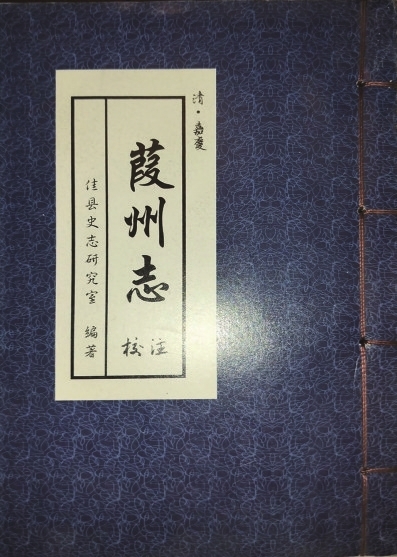 清·嘉慶
葭州志
校注
佳县史志研究室 编著